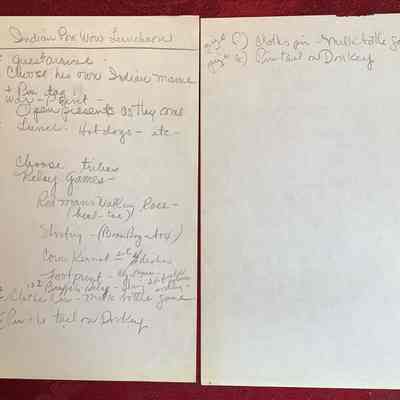 Indian Pow Wow Luncheon
Guest arrives -
Choose his own Indian name
+ Pin tag
War - Paint -
Open presents as they come
Lunch - Hot dogs - etc -
Choose tribes
Relay Games -
Red mans Walking Race -
(heel - toe)
Shooting - (Bean Bag - box)
Corn Kernel
Footprint -
Clothes Pin - Milk bottle game
Pin the tail on Donkey
prize ( ) Clothes pin - milk bottle
prize ( ) Pin tail on Donkey